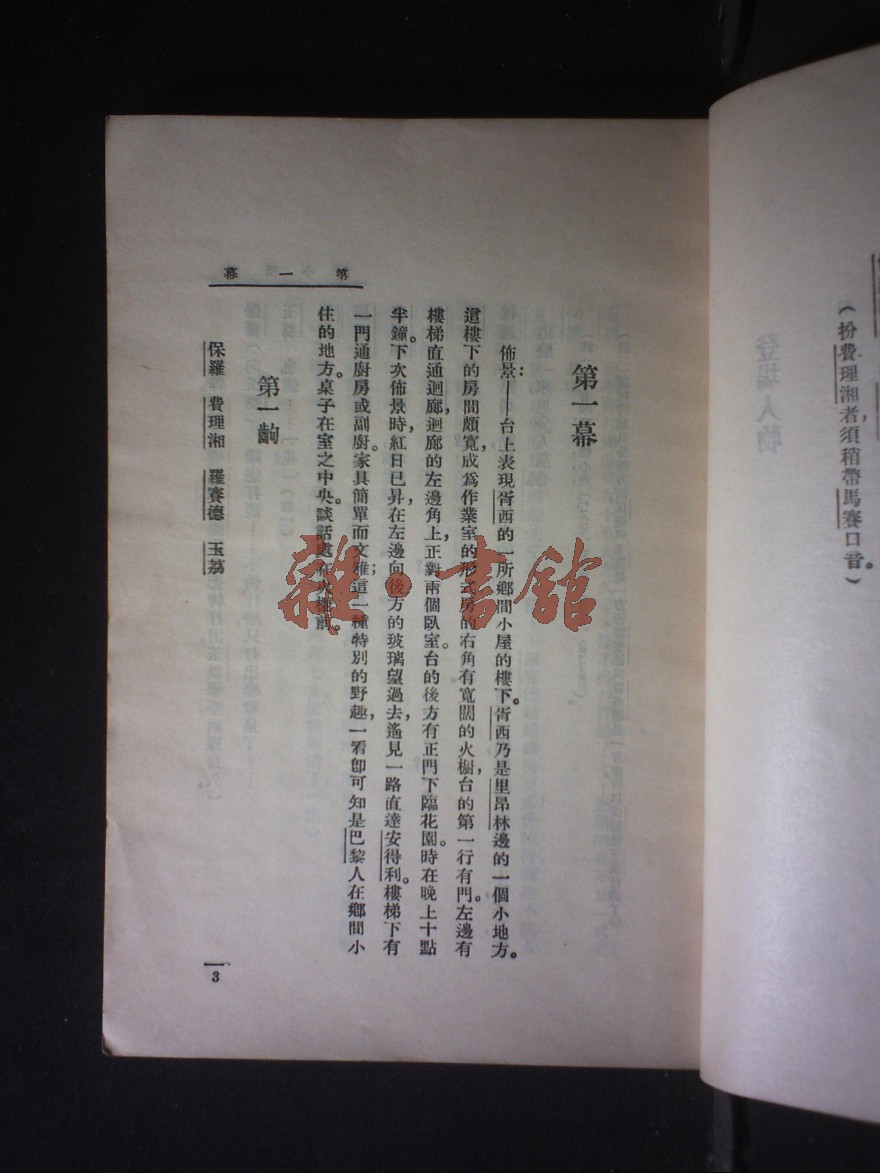 (扮費理湘者,須稍帶馬賽口音。)
第一幕
第一幕
佈景:——台上表現胥西的一所鄉間小屋的樓下。胥西乃是里昂林邊的一個小地方。
這樓下的房間頗寬,成爲作業室的形式。房的右角有寬闊的火櫥,台的第一行有門。左邊有
樓梯直通迴廊,迴廊的左邊角上,正對兩個臥室。台的後方有正門下臨花園。時在晚上十點
半鐘。下次佈景時,紅日已昇,在左邊向後方的玻璃望過去,遙見一路直達安得利。樓梯下有
一門通廚房或副廚。家具簡單而文雅;這一種特別的野趣,一看卽可知是巴黎人在鄉間小
住的地方。桌子在室之中央。談話處在火櫥前。
第一齣
保羅 費理湘 羅賽德 玉荔
3
雜·書館